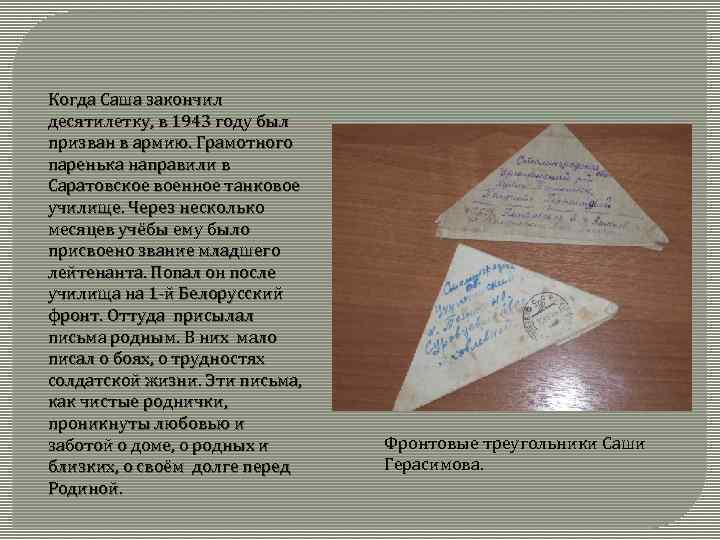 Когда Саша закончил
десятилетку, в 1943 году был
призван в армию. Грамотного
паренька направили в
Саратовское военное танковое
училище. Через несколько
месяцев учёбы ему было
присвоено звание младшего
лейтенанта. Попал он после
училища на 1-й Белорусский
фронт. Оттуда присылал
письма родным. В них мало
писал о боях, о трудностях
солдатской жизни. Эти письма,
как чистые роднички,
проникнуты любовью и
заботой о доме, о родных и
близких, о своём долге перед
Родиной.
Фронтовые треугольники Саши
Герасимова.